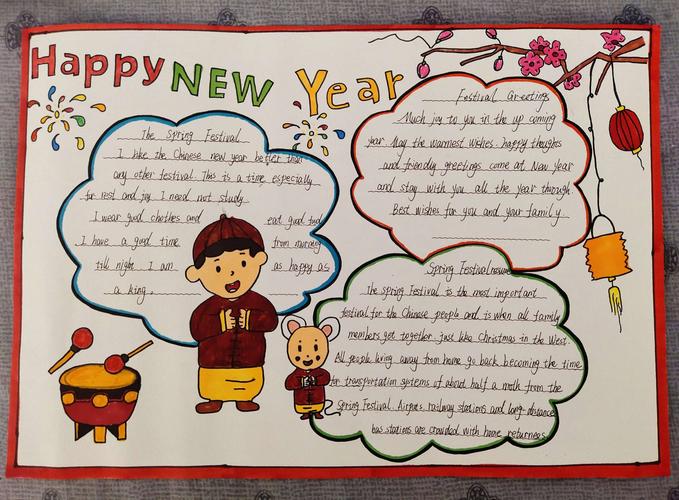 Happy NEW Year
The Spring Festival
I like the Chinese new year better than
any other festival. This is a time, especially
for rest and joy. I need not study
I wear good chothes and eat good food
I have a good time from morning
till night. I am as happy as
a king.
Festival Greetings
Much joy to you in the up coming
year. May the warmest wishes. happy thoughts
and friendly greetings come at New Year
and stay with you all the year through
Best wishes for you and your family
Spring Festival
The spring Festival is the most important
festival for the Chinese people and is when all family
members get together. just like Christmas in the West.
All people living away from home go back, becoming the time
for transportation systems of about half a moth from the
Spring Festival. Airports, railway stations and long-distance
bus stations are crowded with home returnees.